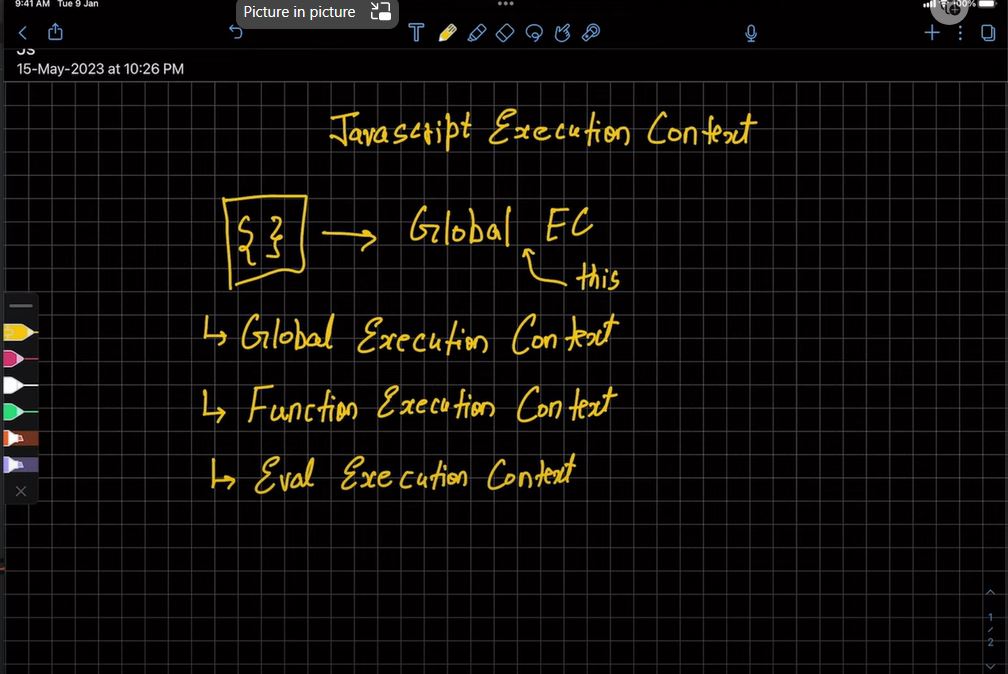 9:41 AM Tue 9 Jan
Picture in picture
100%
JS
15-May-2023 at 10:26 PM
Javascript Execution Context
{ } → Global EC
this
↳ Global Execution Context
↳ Function Execution Context
↳ Eval Execution Context
1
2